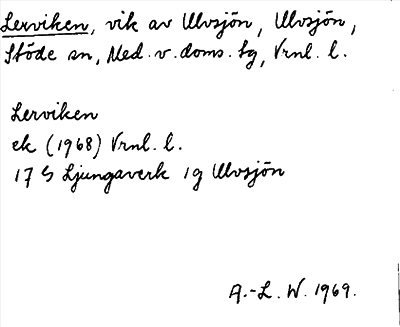 Lerviken, vik av Ulvsjön, Ulvsjön,
Stöde sn, Med. v. doms. tg, Vrnl. l.
Lerviken
ek (1968) Vrnl. l.
17 G Ljungaverk 1g Ulvsjön
A.-L. W. 1969.